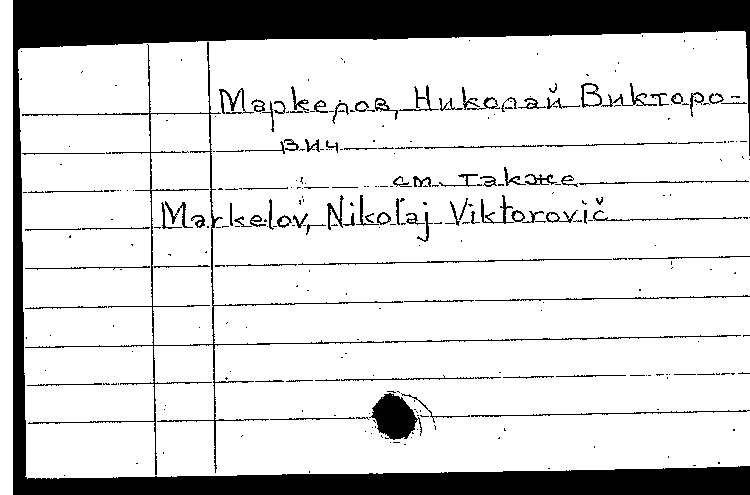 Маркелов, Николай Викторо-
вич
см. также
Markelov, Nikolaj Viktorovič